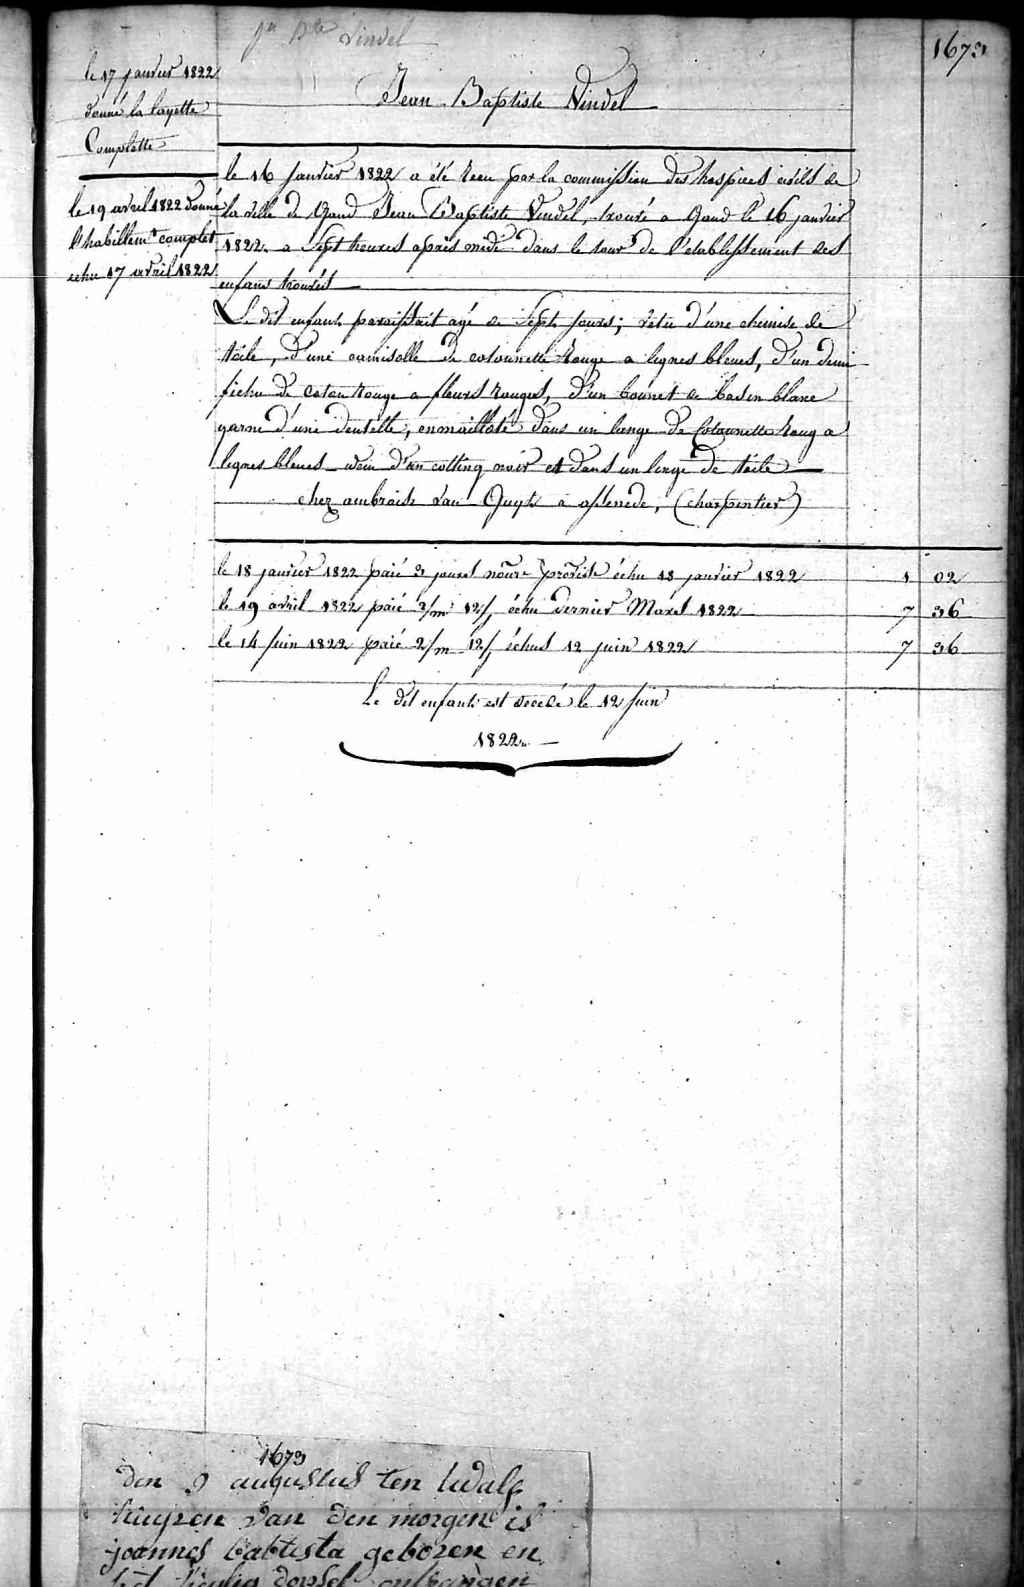 Jn Bte Vindel
1673
Jean Baptiste Vindel
le 17 janvier 1822
donné la layette
Complette
le 19 avril 1822 donné
l'habillemt complet
echu 17 avril 1822
le 16 Janvier 1822 a été recu par la commission des hospices civils de
la ville de Gand Jean Baptiste Vindel, trouvé a Gand le 16 janvier
1822 a Sept heures après midi dans le tour de l'etablissement des
enfans trouvés
Le dit enfant paraissait agé de Sept jours; vetu d'une chemise de
toile, d'une camisolle de cotonnette rouge a lignes bleues, d'un demi
fichu de coton rouge a fleurs rouges, d'un bonnet de basin blanc
garni d'une dentelle, enmailloté dans un lange de Cotonnette roug a
lignes bleues d'un cotting noir et dans un linge de toile
chez ambroise van Guyse a assenede, (charpentier)
le 18 janvier 1822 paié 3 jours nourre proviste échu 18 janvier 1822 1 02
le 19 avril 1822 paié 3/m 12/j échu dernier Mars 1822 7 36
le 14 Juin 1822 paié 2/m 12/j échus 12 juin 1822 7 36
Le dit enfant est decedé le 12 Juin
1822
1673
den 9 augustus ten twalf
huyren van den morgen is
joannes babtista geboren en
het doopsel ontfangen